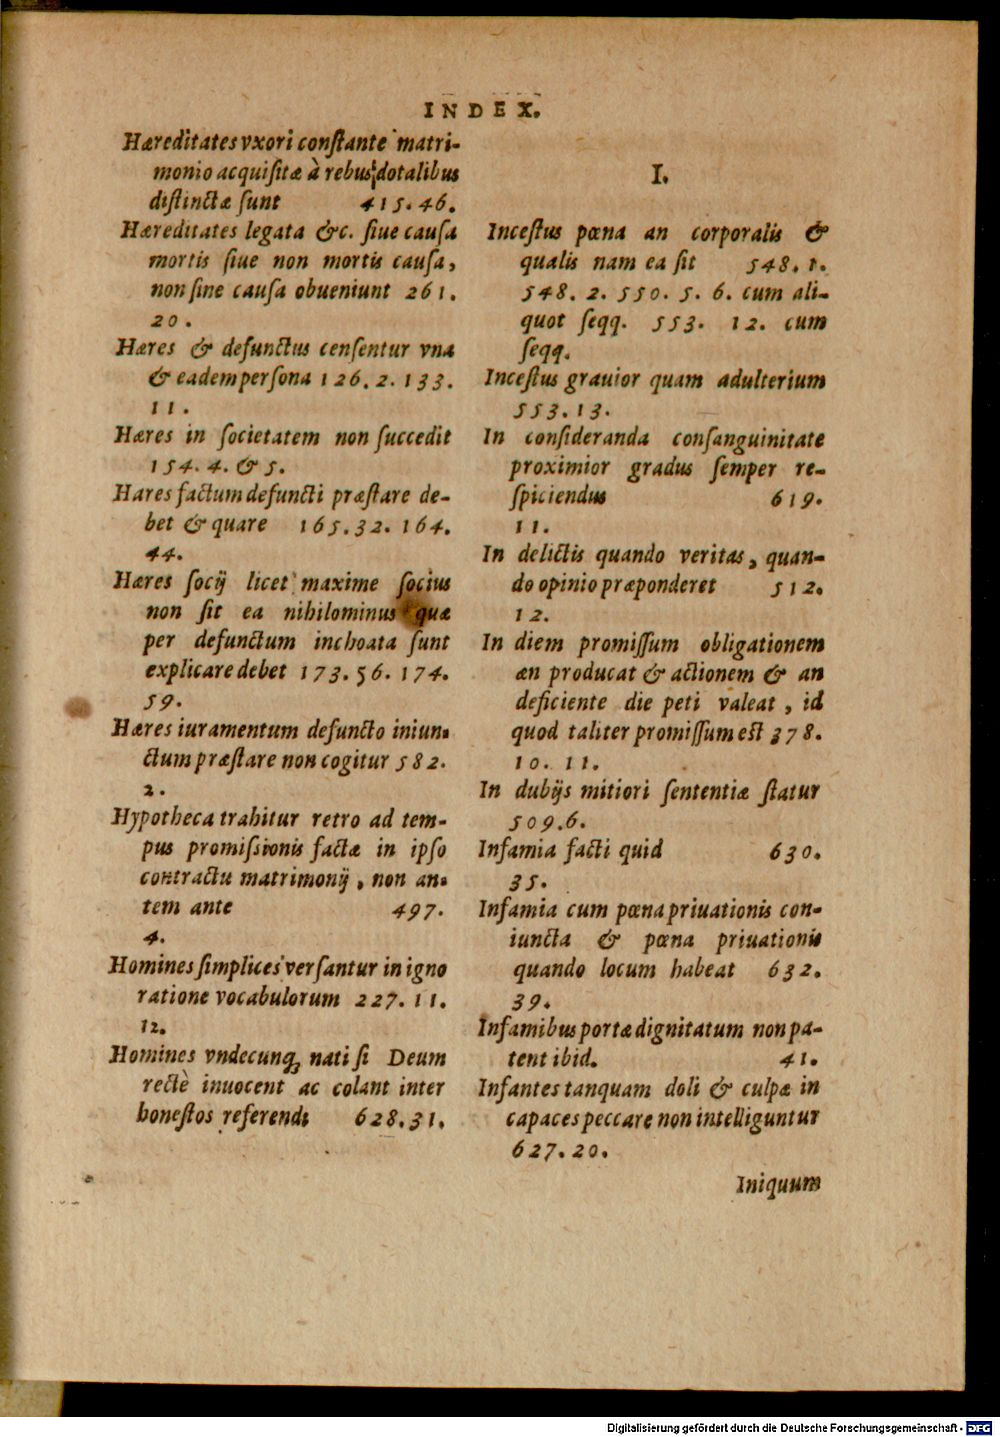 INDEX.
Hæreditates vxori conſtante matri-
monio acquiſitæ à rebus dotalibus
diſtinctæ ſunt 415. 46.
Hæreditates legata &c. ſiue cauſa
mortis ſiue non mortis cauſa,
non ſine cauſa obueniunt 261.
20.
Hæres & defunctus cenſentur vna
& eadem perſona 126. 2. 133.
11.
Hæres in ſocietatem non ſuccedit
154. 4. & 5.
Hares factum defuncti præſtare de-
bet & quare 165. 32. 164.
44.
Hæres ſocij licet maxime ſocius
non ſit ea nihilominus quæ
per defunctum inchoata ſunt
explicare debet 173. 56. 174.
59.
Hæres iuramentum defuncto iniun-
ctum præſtare non cogitur 582.
2.
Hypotheca trahitur retro ad tem-
pus promiſsionis factæ in ipſo
contractu matrimonij, non an-
tem ante 497.
4.
Homines ſimplices verſantur in igno
ratione vocabulorum 227. 11.
12.
Homines vndecunq́; nati ſi Deum
rectè inuocent ac colant inter
honeſtos referendi 628. 31.
I.
Inceſtus pœna an corporalis &
qualis nam ea ſit 548. 1.
548. 2. 550. 5. 6. cum ali-
quot ſeqq. 553. 12. cum
ſeqq.
Inceſtus grauior quam adulterium
553. 13.
In conſideranda conſanguinitate
proximior gradus ſemper re-
ſpiciendus 619.
11.
In delictis quando veritas, quan-
do opinio præponderet 512.
12.
In diem promiſſum obligationem
an producat & actionem & an
deficiente die peti valeat, id
quod taliter promiſſum eſt 378.
10. 11.
In dubijs mitiori ſententiæ ſtatur
509. 6.
Infamia facti quid 630.
35.
Infamia cum pœna priuationis con-
iuncta & pœna priuationis
quando locum habeat 632.
39.
Infamibus portæ dignitatum non pa-
tent ibid. 41.
Infantes tanquam doli & culpæ in
capaces peccare non intelliguntur
627. 20.
Iniquum
Digitalisierung gefördert durch die Deutsche Forschungsgemeinschaft - DFG